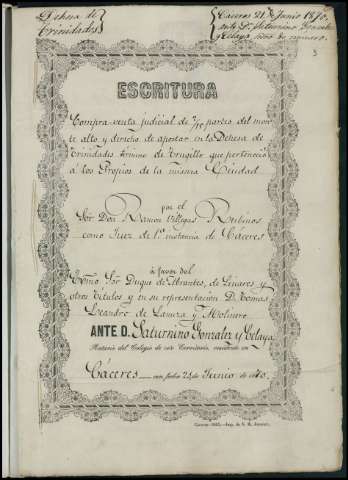 Dehesa de
Trinidades
Cáceres 21 de Junio 1870,
ante D. Saturnino Gonzalez
y Celaya, notº de número.
3
ESCRITURA
Compra-venta judicial de partes del mon-
te alto y derecho de apostar en la Dehesa de
Trinidades término de Trugillo que perteneció
á los Propios de la misma Ciudad
por el
Sor Don Ramon Villegas Rubinos
como Juez de 1ª instancia de Cáceres
á favor del
Ecmo Sor Duque de Abrantes, de Linares y
otros Titulos y en su representacion D. Tomas
Leandro de Lamiza y Molinero
ANTE D. Saturnino Gonzalez y Celaya
Notario del Colegio de este Territorio, residente en
Cáceres con fecha 21 de Junio de 1870.
Cáceres: Imp. de